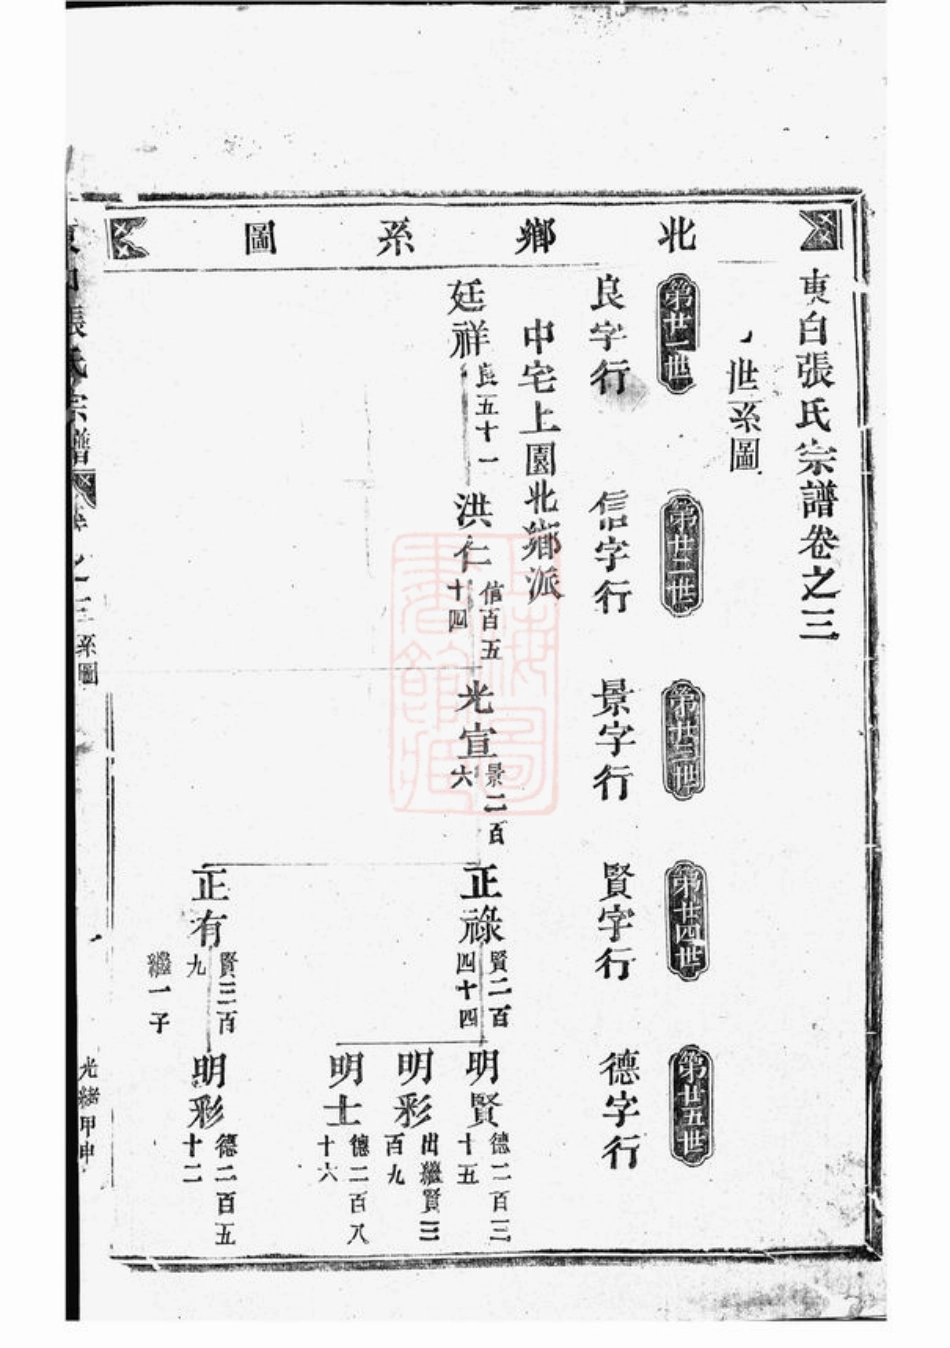 北鄉系圖
東白張氏宗譜卷之三
世系圖
第廿一世
第廿二世
第廿三世
第廿四世
第廿五世
良字行
信字行
景字行
賢字行
德字行
中宅上園北鄉派
廷祥
良五十一
洪仁
信百五十四
光宣
景二百六
正祿
賢二百四十四
明賢
德二百三十五
明彩
出繼賢三百九
明士
德二百八十六
正有
賢三百九
繼一子
明彩
德二百五十二
張氏宗譜
卷之三
系圖
光緒甲申